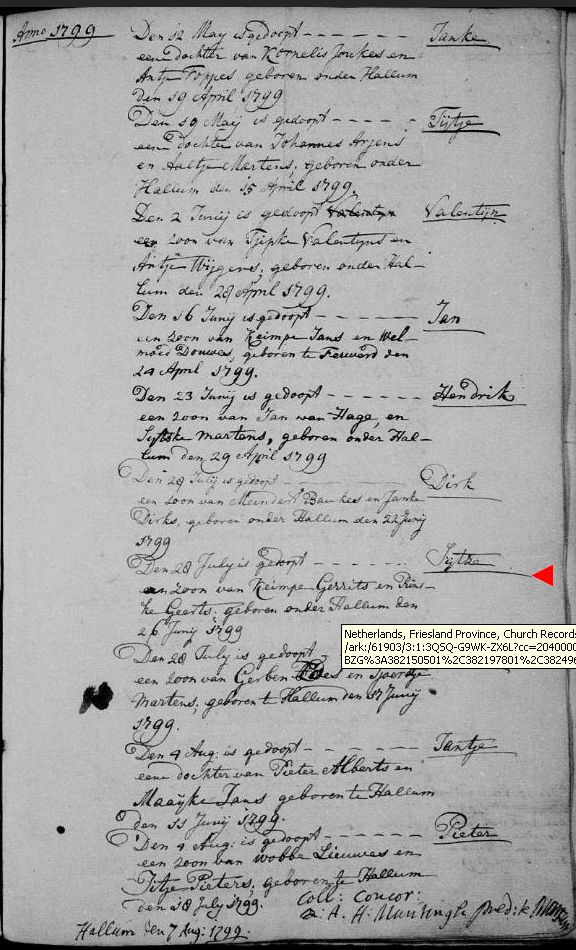 Anno 1799
Den 12 May is gedoopt - - - - - - Janke
een dochter van Kornelis Joukes en
Antje Foppes geboren onder Hallum
den 19 April 1799
Den 19 Maij is gedoopt - - - - - Tijtje
een dochter van Johannes Arjens
en Aaltje Martens, geboren onder
Hallum den 15 April 1799.
Den 2 Junij is gedoopt Valentyn Valentyn
een zoon van Tjipke Valentyns en
Antje Wijgers, geboren onder Hal-
lum den 28 April 1799.
Den 16 Junij is gedoopt - - - - - - Jan
een zoon van Keimpe Jans en Wel-
moed Douwes, geboren te Ferwerd den
24 April 1799.
Den 23 Junij is gedoopt - - - - - - Hendrik
een zoon van Jan van Hage, en
Sijtske Martens, geboren onder Hal-
lum den 29 April 1799
Den 28 July is gedoopt Dirk
een zoon van Meindert Baukes en Janke
Dirks, geboren onder Hallum den 22 Junij
1799
Den 28 July is gedoopt - - - - - - Sytze
een zoon van Keimpe Gerrits en Rins-
ke Geerts, geboren onder Hallum den
26 Junij 1799
Netherlands, Friesland Province, Church Records
/ark:/61903/3:1:3QSQ-G9WK-ZX6L?cc=2040000
BZG%3A382150501%2C382197801%2C382496
Den 28 July is gedoopt -
een zoon van Gerben en Sjoerdje
Martens, geboren te Hallum den 17 Junij
1799.
Den 4 Aug: is gedoopt - - - - - - Jantje
eene dochter van Pieter Alberts en
Maayke Jans geboren te Hallum
den 11 Junij 1799.
Den 4 Aug: is gedoopt - - - - - - Pieter
een zoon van Wobbe Lieuwes en
Titje Pieters, geboren te Hallum
den 18 July 1799.
Coll: concor:
Q: A. H. Muntingh predik:
Hallum den 7 Aug: 1799.